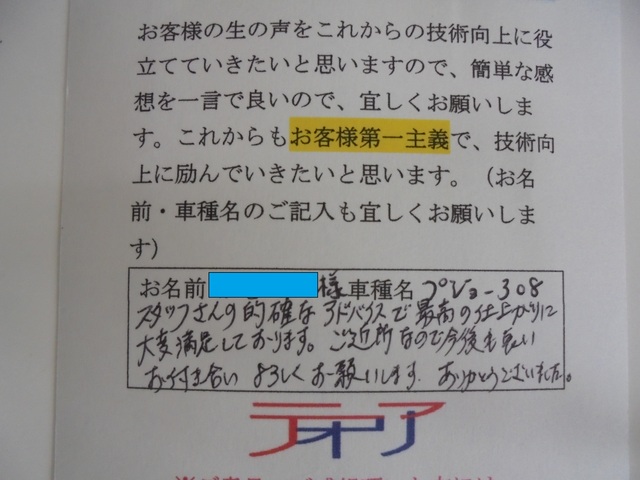 お客様の生の声をこれからの技術向上に役
立てていきたいと思いますので、簡単な感
想を一言で良いので、宜しくお願いしま
す。これからもお客様第一主義で、技術向
上に励んでいきたいと思います。（お名
前・車種名のご記入も宜しくお願いしま
す）
お名前 様 車種名 プジョー308
スタッフさんの的確なアドバイスで最高の仕上がりに
大変満足しております。ご近所なので今後も良い
お付き合いよろしくお願いします。ありがとうございました。
テオリア